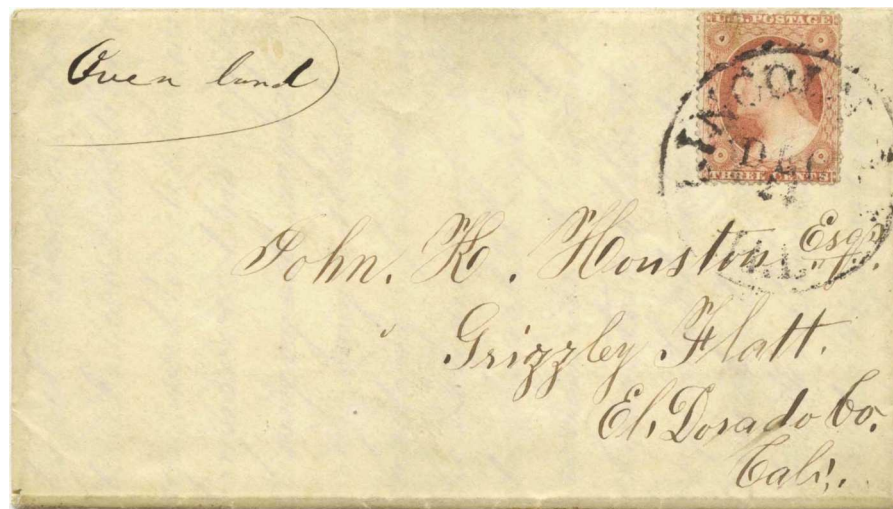 Over land
U.S. POSTAGE
THREE CENTS
LINCOLN
John. K. Houston Esqr.
Grizzley Flatt.
El, Dorado Co.
Cali,.